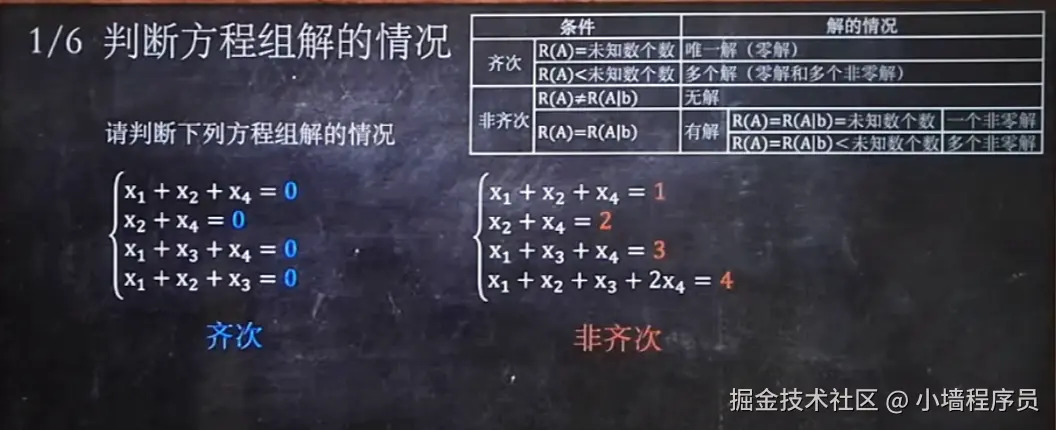 1/6 判断方程组解的情况
条件 解的情况
齐次 R(A)=未知数个数 唯一解（零解）
R(A)<未知数个数 多个解（零解和多个非零解）
非齐次 R(A)≠R(A|b) 无解
R(A)=R(A|b) 有解 R(A)=R(A|b)=未知数个数 一个非零解
R(A)=R(A|b)<未知数个数 多个非零解
请判断下列方程组解的情况
x₁ + x₂ + x₄ = 0
x₂ + x₄ = 0
x₁ + x₃ + x₄ = 0
x₁ + x₂ + x₃ = 0
齐次
x₁ + x₂ + x₄ = 1
x₂ + x₄ = 2
x₁ + x₃ + x₄ = 3
x₁ + x₂ + x₃ + 2x₄ = 4
非齐次
掘金技术社区 @ 小墙程序员